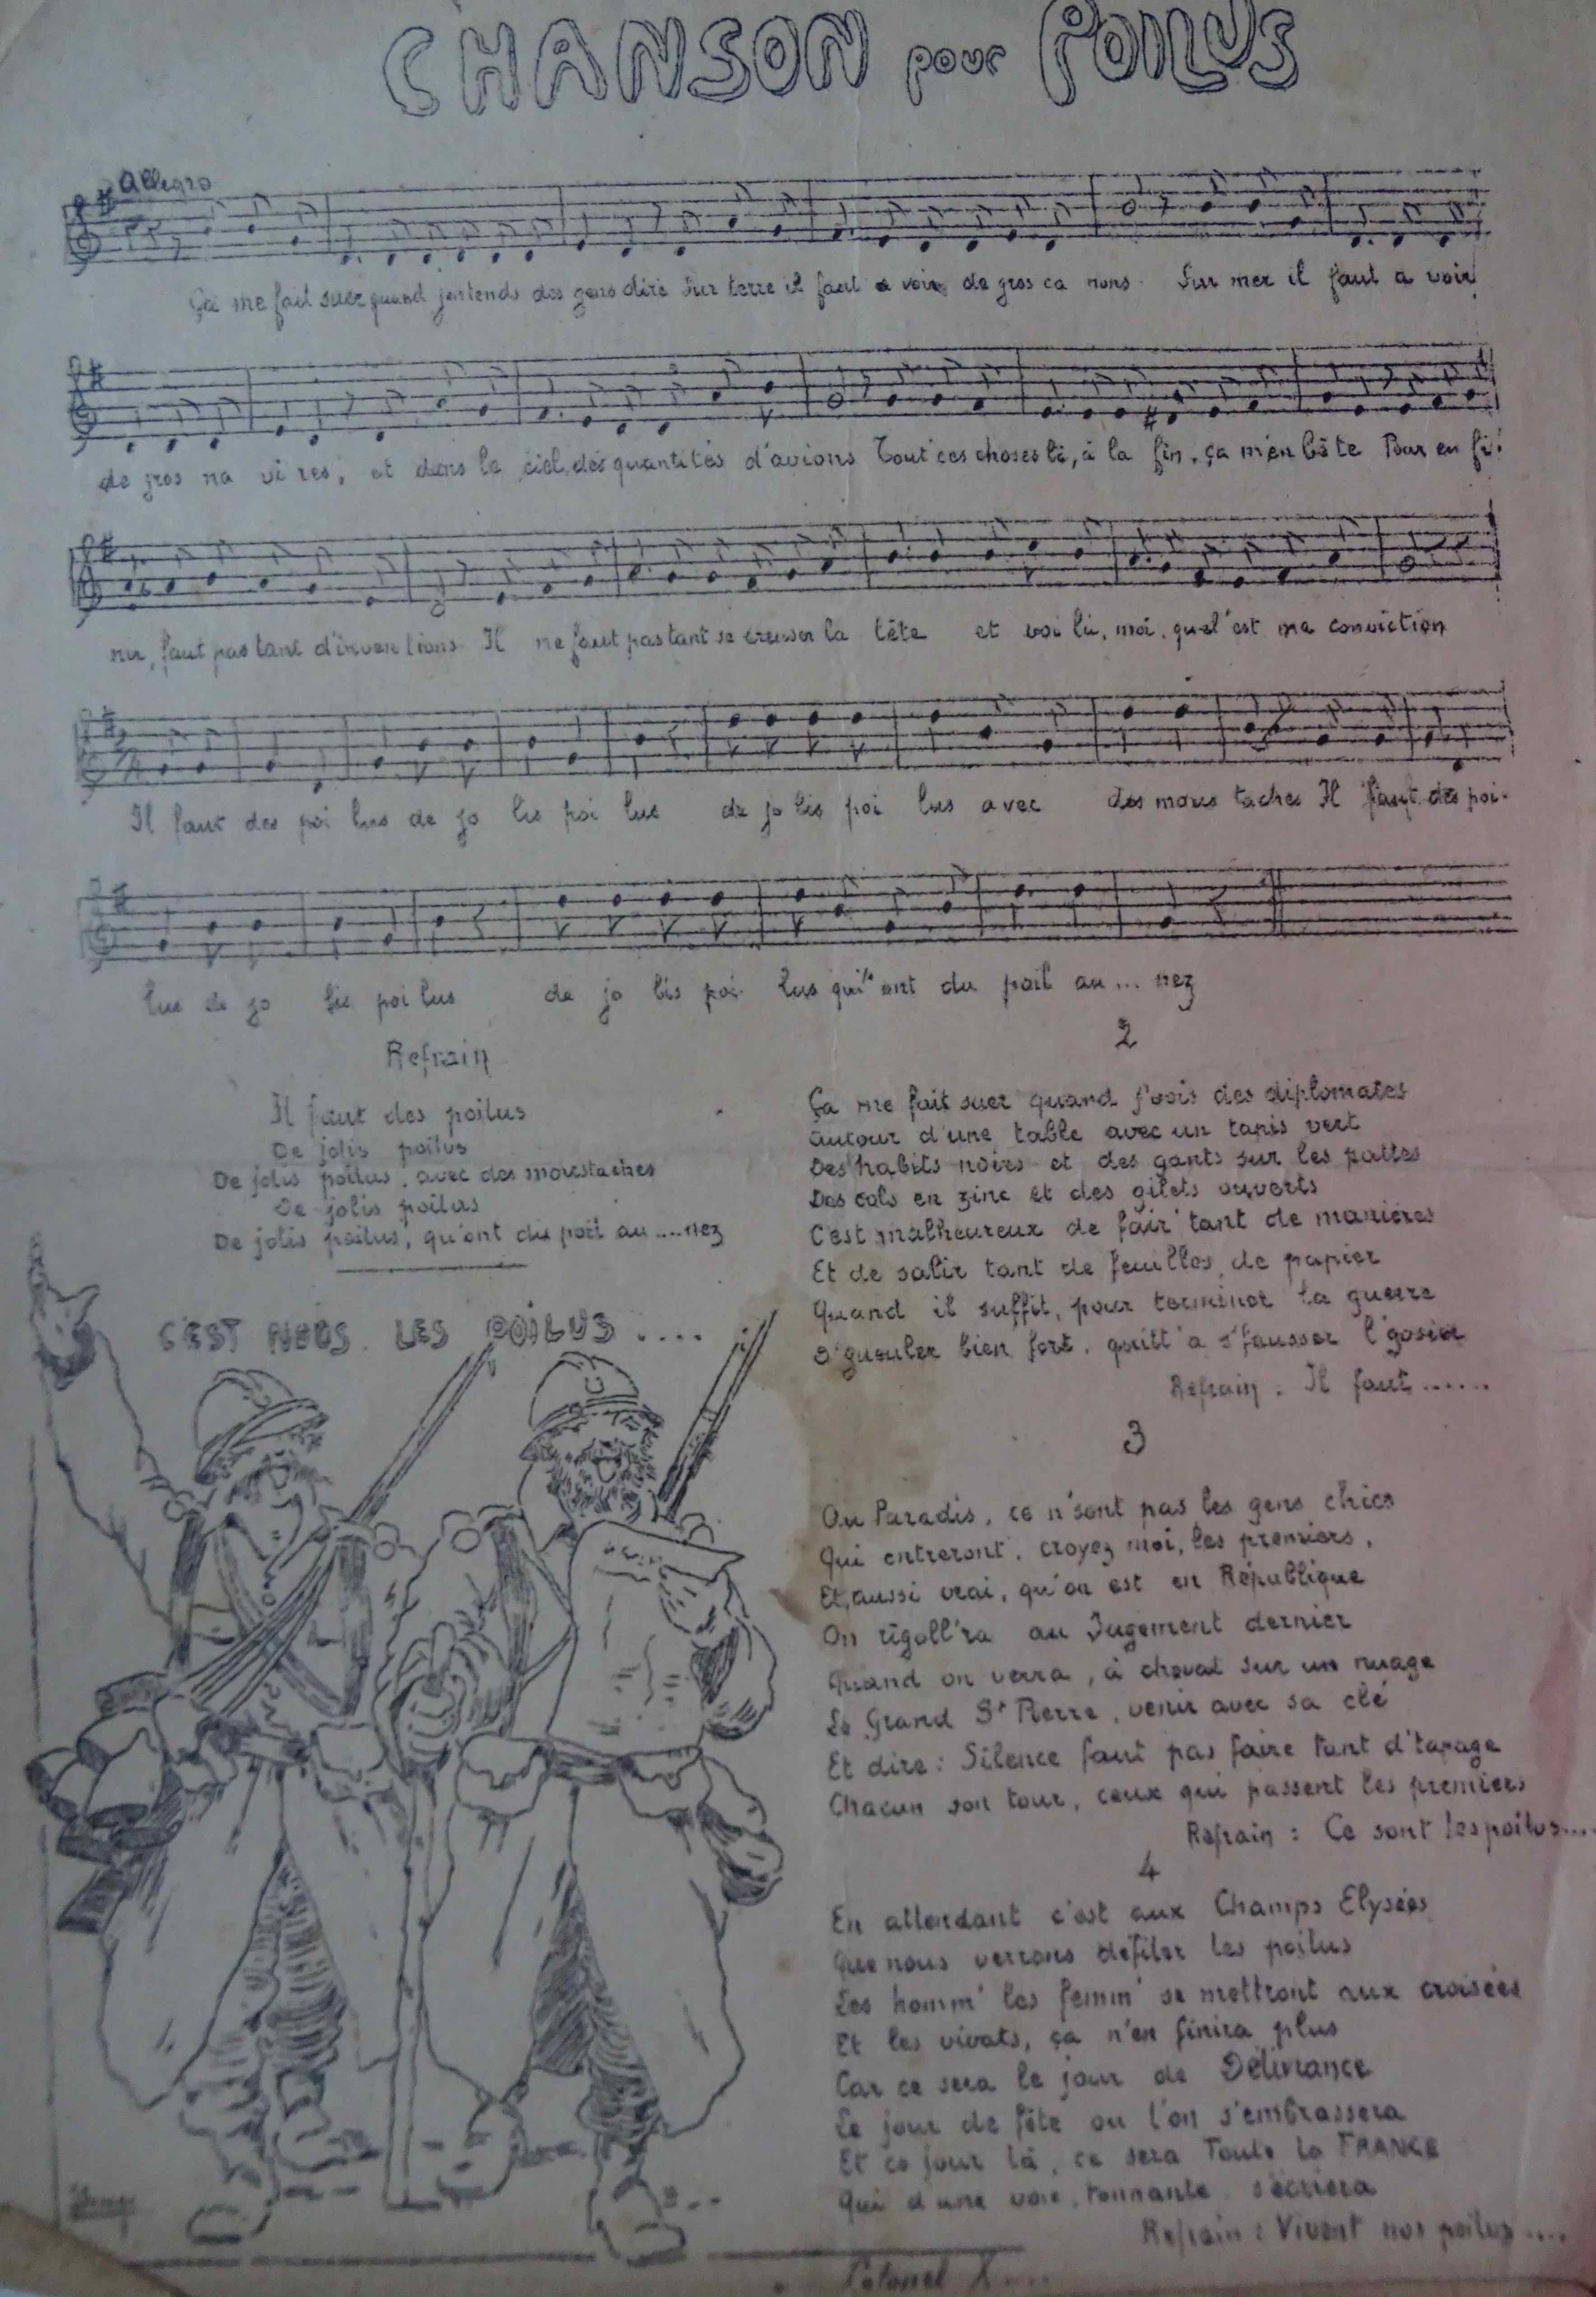 CHANSON pour POILUS
Allegro
Ça me fait suer quand j'entends des gens dire Sur terre il faut a voir de gros ca nons. Sur mer il faut a voir
de gros na vi res, et dans le ciel, des quantités d'avions Tout ces choses là, à la fin, ça m'en bê te Pour en fi-
nir, faut pas tant d'inven tions Il ne faut pas tant se creuser la tête et voi là, moi, quel'est ma conviction
Il faut des poi lus de jo lis poi lus de jo lis poi lus avec des mous taches Il faut des poi-
lus de jo lis poi lus de jo lis poi lus qui ont du poil au ... nez
Refrain
Il faut des poilus
De jolis poilus
De jolis poilus, avec des moustaches
De jolis poilus
De jolis poilus, qu'ont du poil au ....nez
C'EST NOUS. LES POILUS ....
2
Ça me fait suer quand j'vois des diplomates
autour d'une table avec un tapis vert
Des habits noirs et des gants sur les pattes
Des cols en zinc et des gilets ouverts
C'est malheureux de fair' tant de manières
Et de salir tant de feuilles de papier
Quand il suffit, pour terminer la guerre
D'gueuler bien fort, quitt' à s'fausser l'gosier
Refrain. Il faut ......
3
Au Paradis, ce n'sont pas les gens chics
Qui entreront, croyez moi, les premiers,
Et, aussi vrai, qu'on est en République
On rigoll'ra au Jugement dernier
Quand on verra, à cheval sur un nuage
Le Grand St Pierre, venir avec sa clé
Et dire : Silence faut pas faire tant d'tapage
Chacun son tour, ceux qui passent les premiers
Refrain : Ce sont les poilus....
4
En attendant c'est aux Champs Elysées
Que nous verrons défiler les poilus
Les homm' les femm' se mettront aux croisées
Et les vivats, ça n'en finira plus
Car ce sera le jour de Délivrance
Le jour de fête ou l'on s'embrassera
Et ce jour là, ce sera Toute la FRANCE
Qui d'une voix tonnante s'écriera
Refrain : Vivent nos poilus ....
Colonel X....